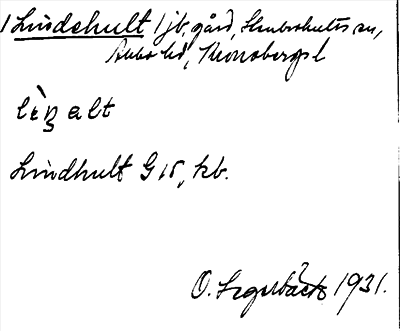 1 Lindshult 1 jb. gård, Stenbrohults sn,
Allbo hd, Kronobergs l
lèn̥ alt
Lindhult G 15, kb.
O. 1931.